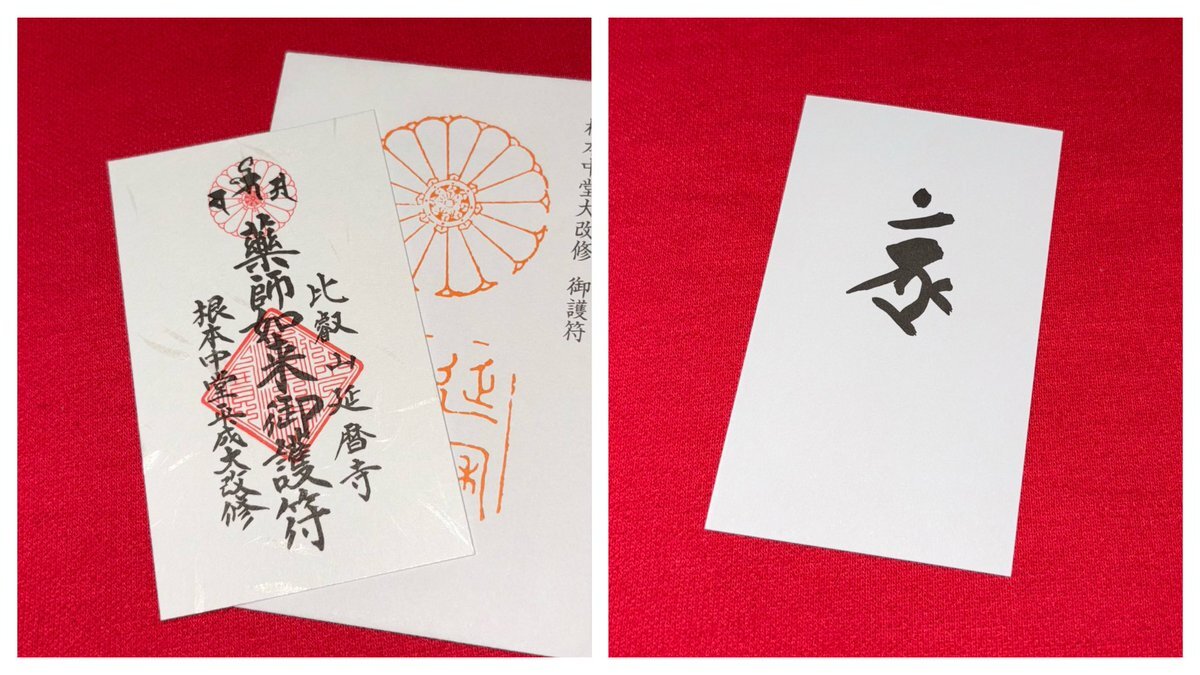 比叡山延暦寺
藥師如来御護符
根本中堂平成大改修
根本中堂大改修 御護符
延